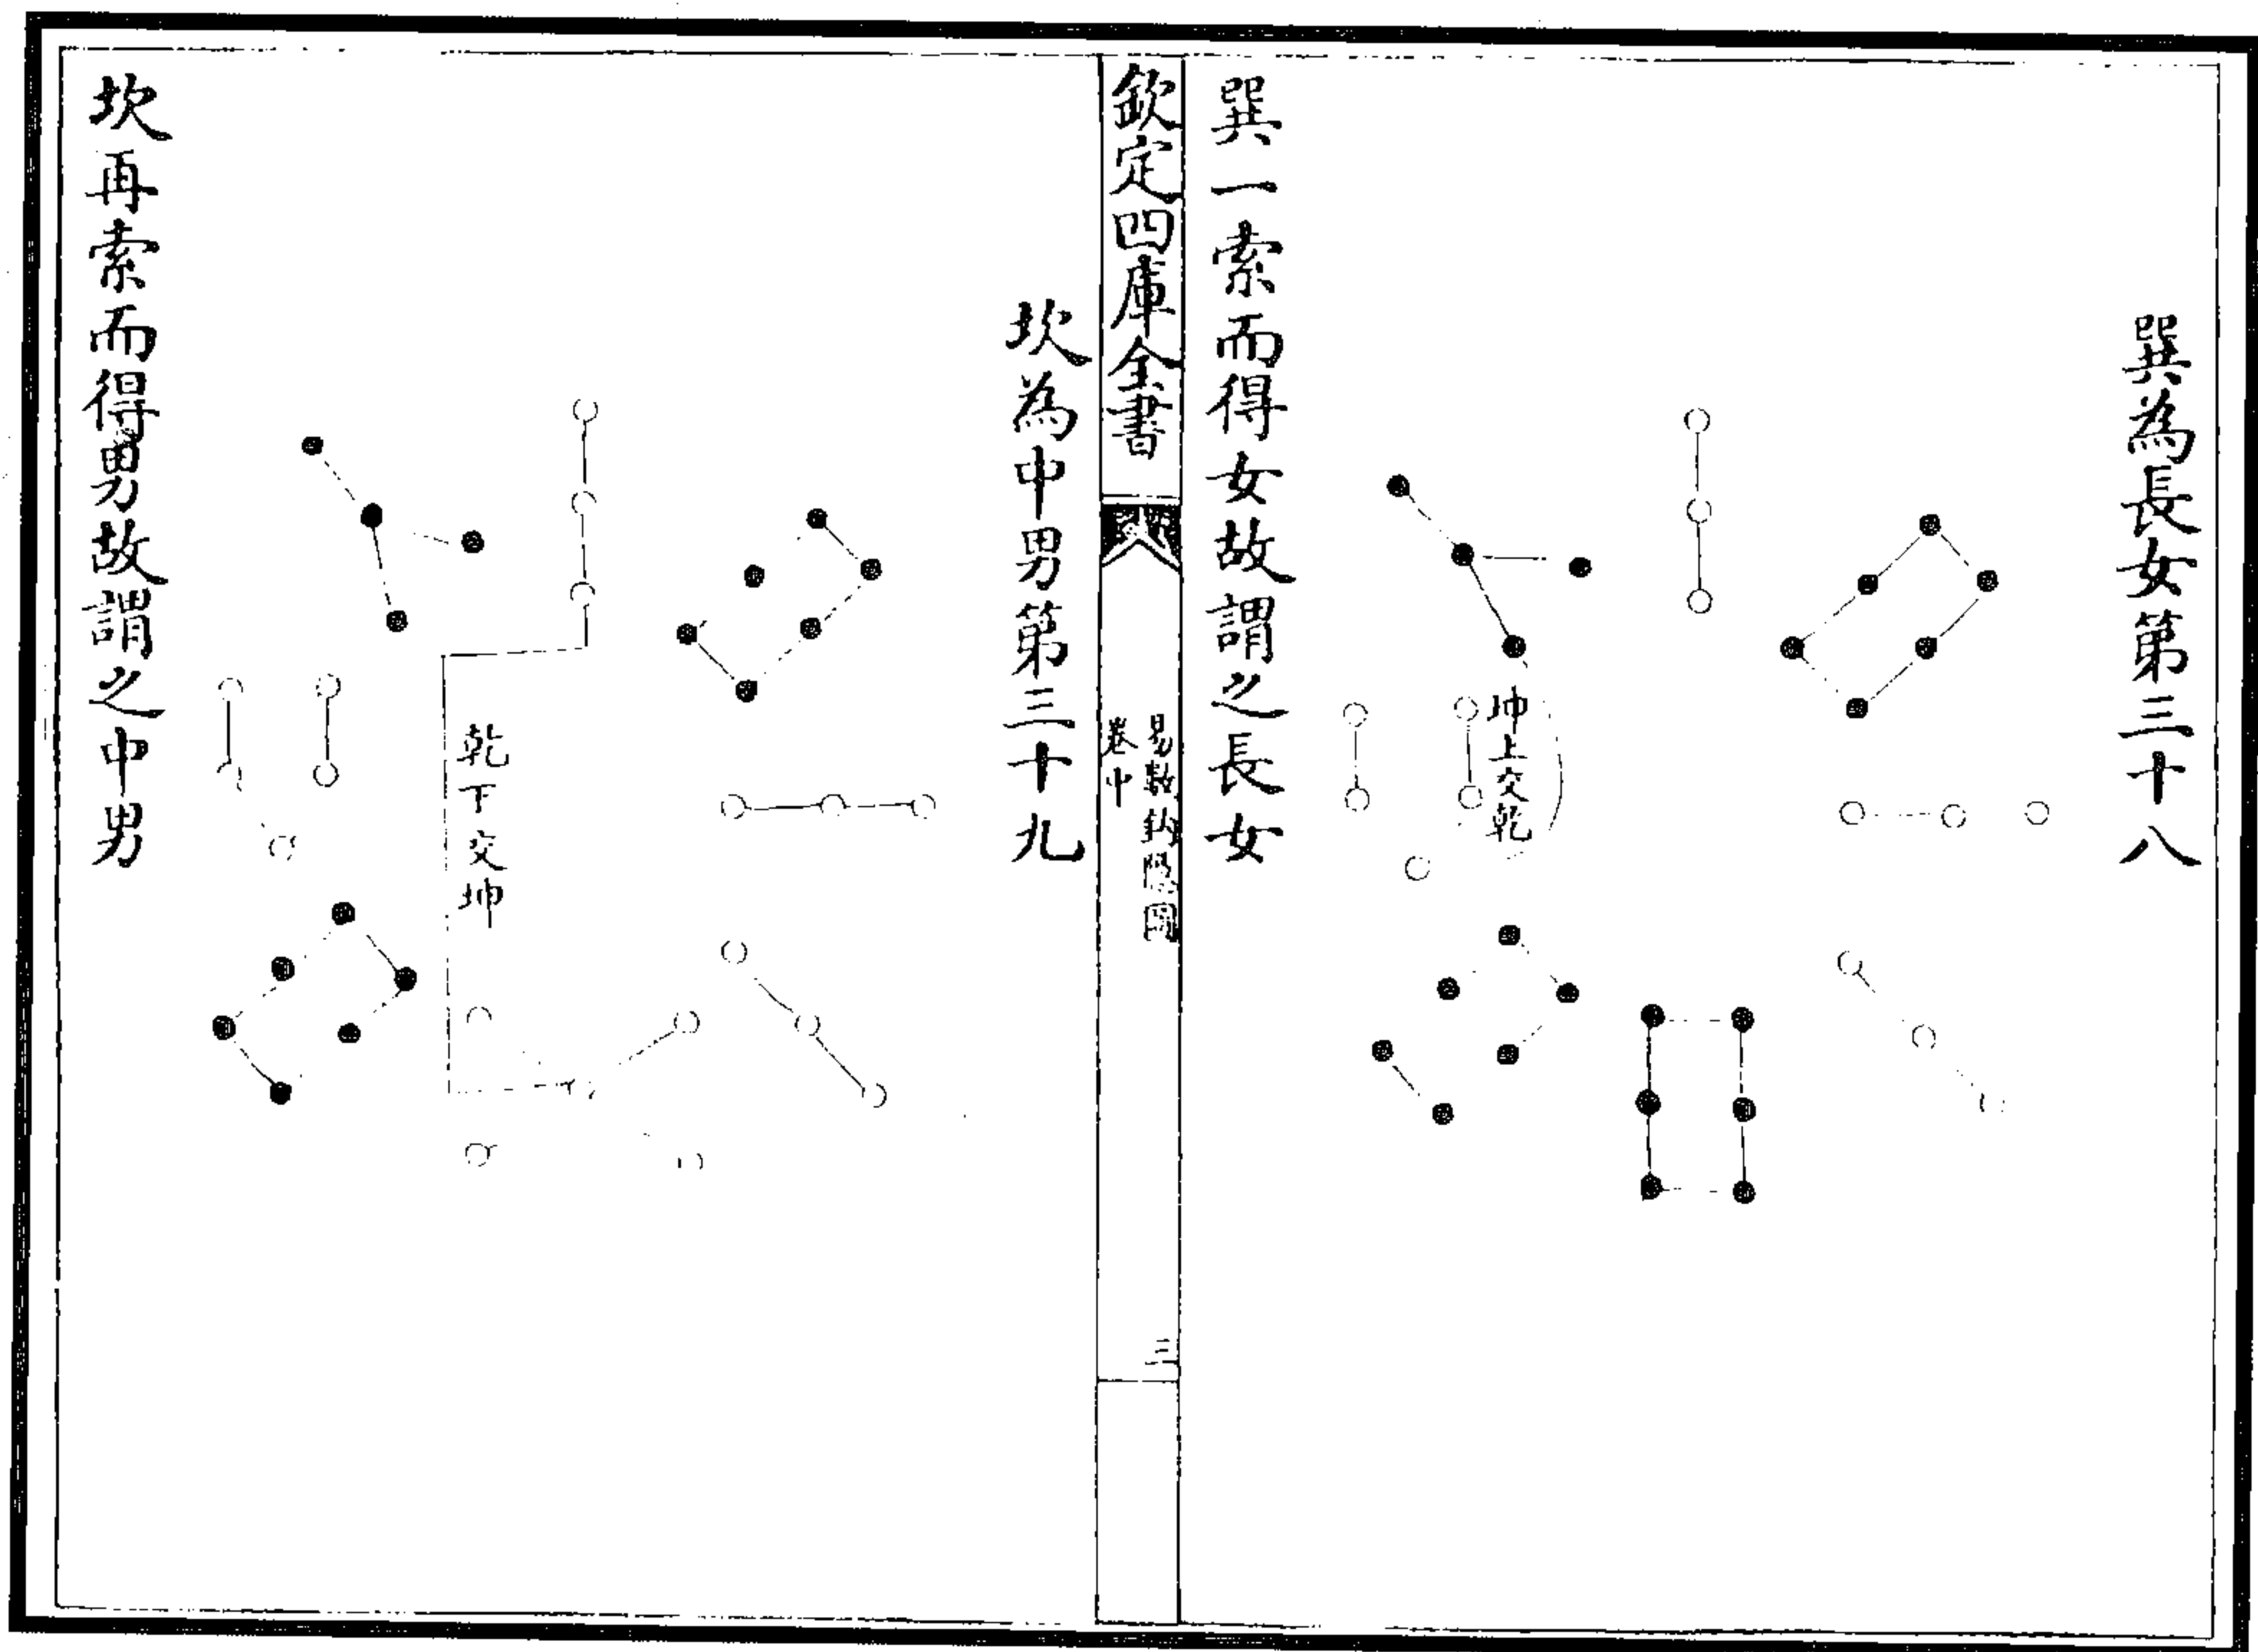 巽為長女第三十八
坤上交乾
巽一索而得女故謂之長女
欽定四庫全書
易數鈎隱圖
卷中
三
坎為中男第三十九
乾下交坤
坎再索而得男故謂之中男